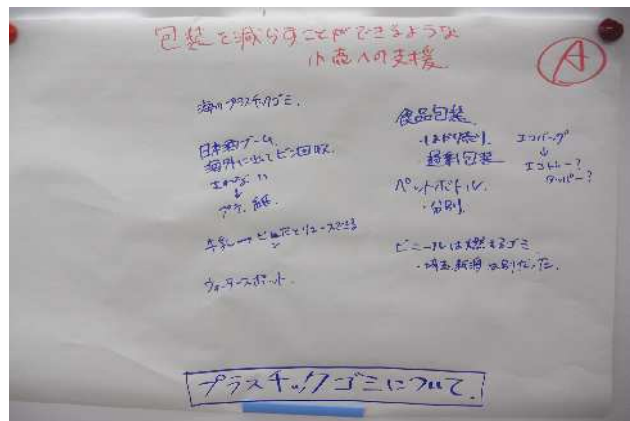 包装を減らすことができるような
小売への支援
A
海のプラスチックゴミ.
日本酒ブーム.
海外に出てビン回収
できない
↓
プラ、紙
牛乳→ビンだとリユースできる
ウォータースポット.
食品包装.
・はかり売り
・過剰包装
エコバッグ
↓
エコトレー?
タッパー?
ペットボトル.
・分別
ビニールは燃えるゴミ
・埼玉、新潟は別だった.
プラスチックゴミについて.